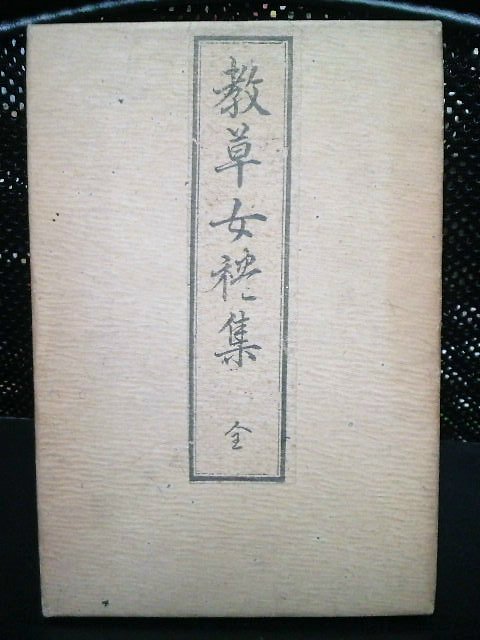 教草女禮集 全